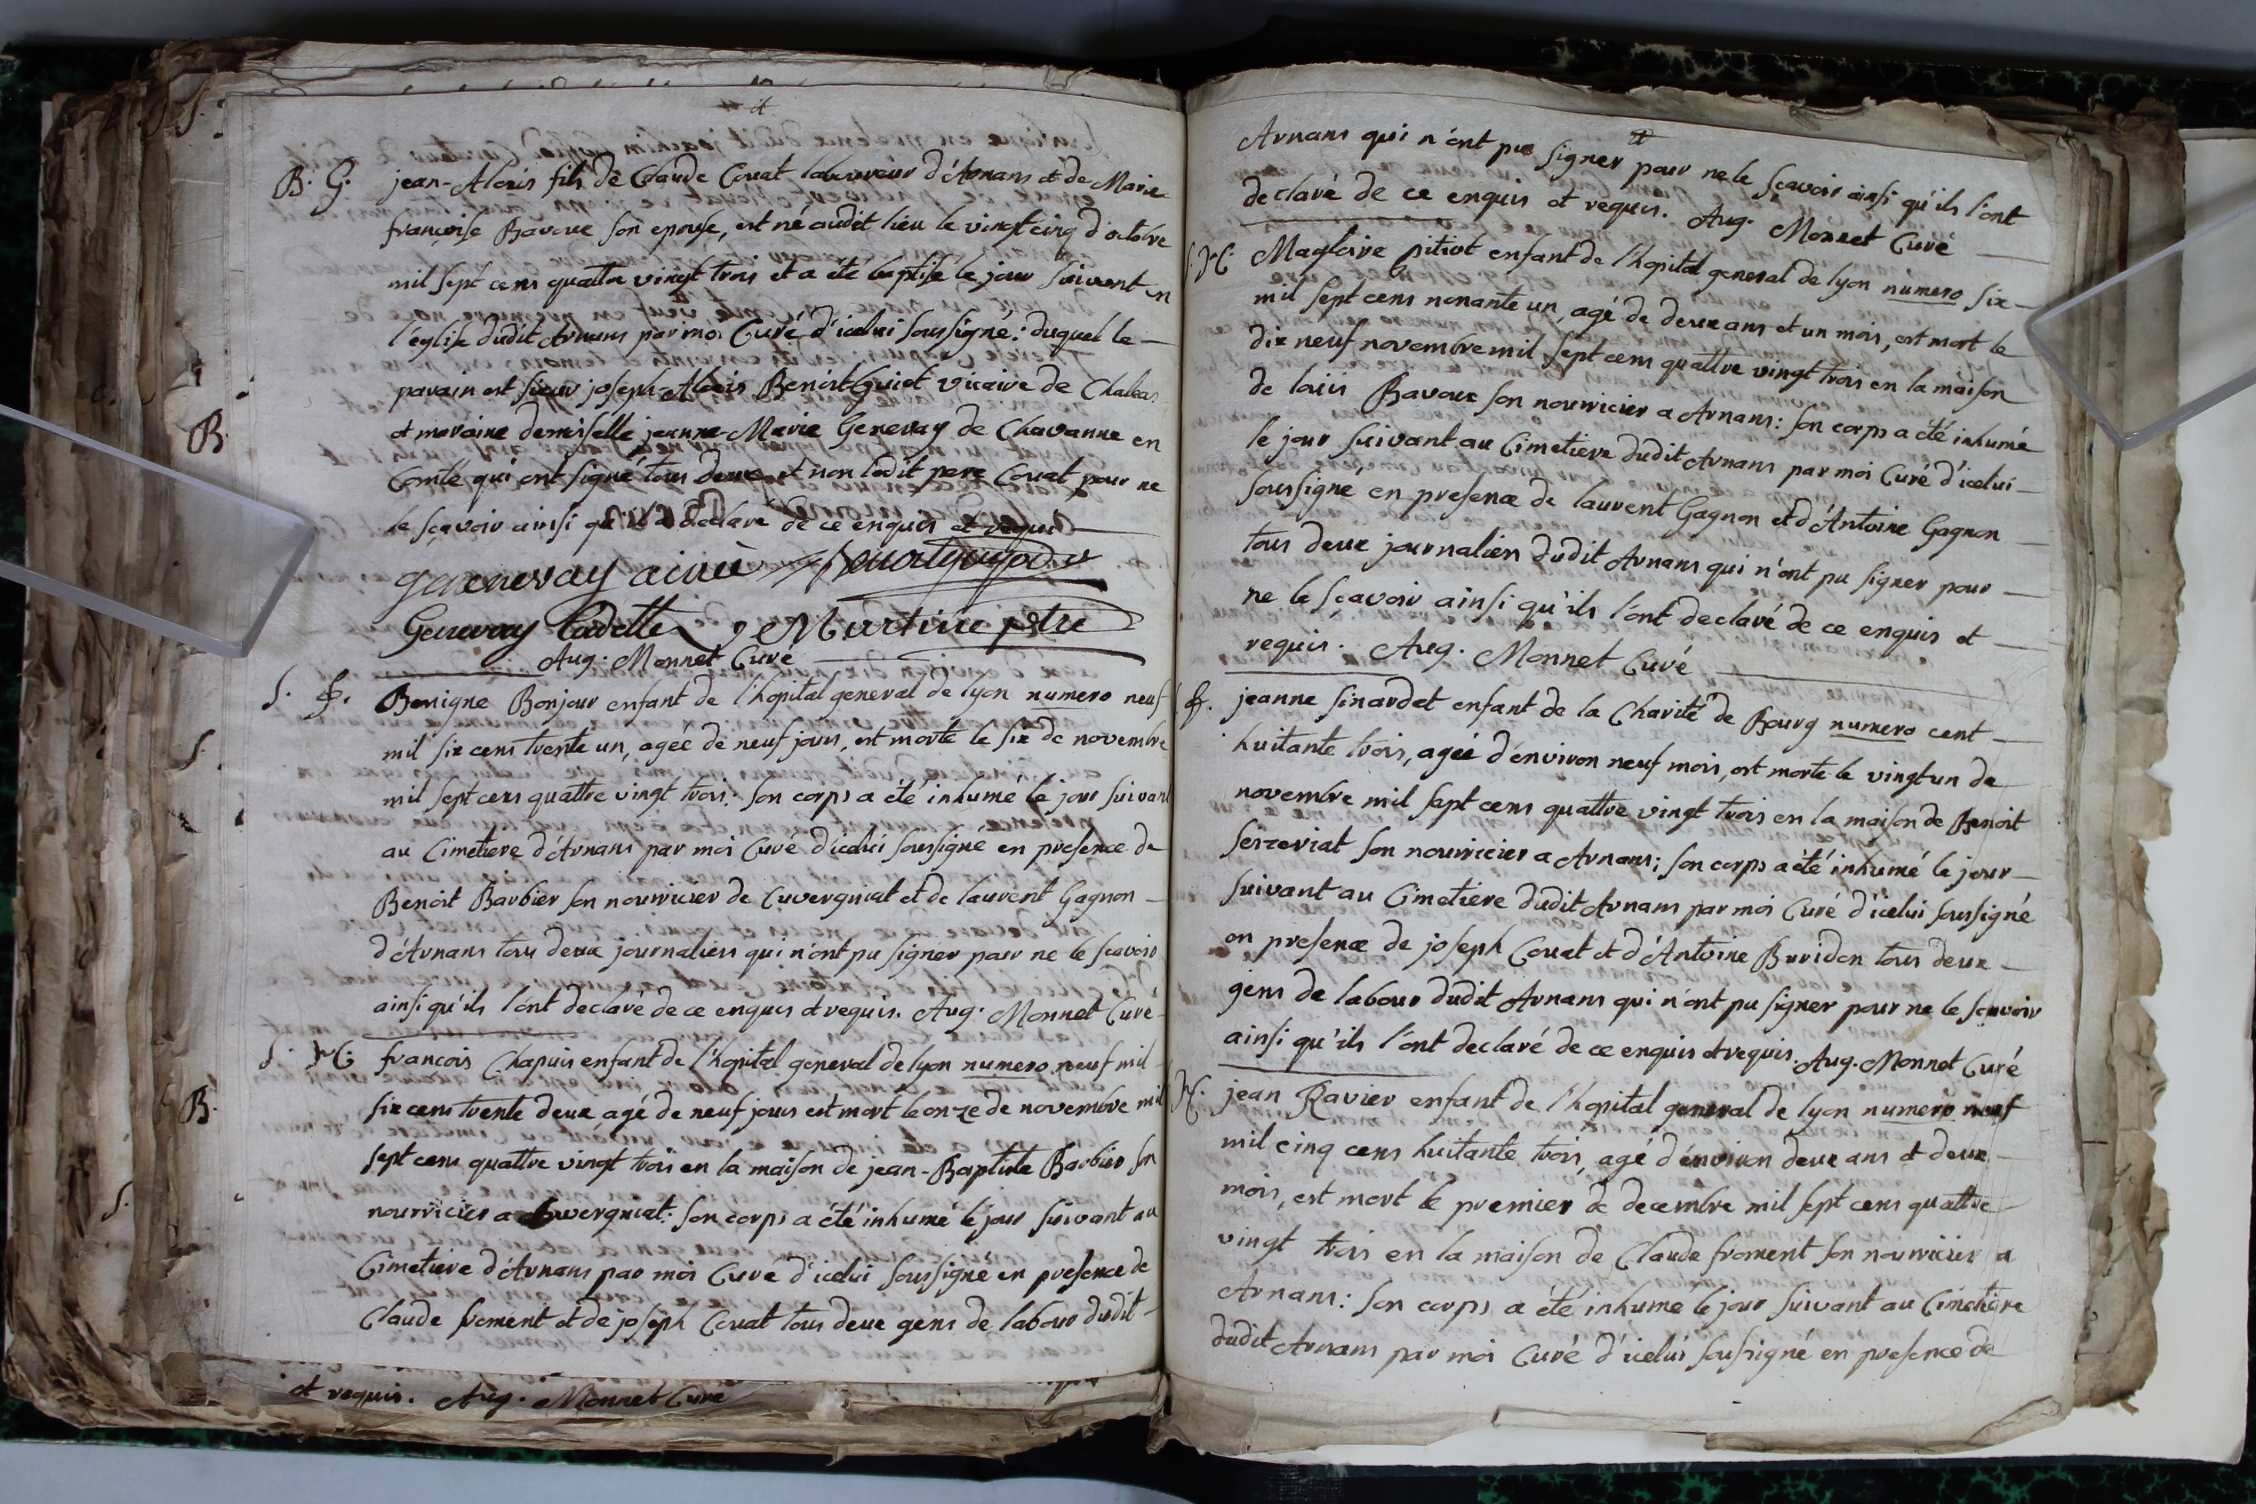 B. G. jean-Alexis fils de Claude Couat laboureur d'Arnans et de Marie
françoise Bavoux son epouse, est né audit lieu le vingt cinq d'octobre
mil sept cens quattre vingt trois et a été baptisé le jour suivant en
l'église dudit Arnans par moi Curé d'icelui soussigné: duquel le
parain est sieur joseph-Alexis Benoit Guiot vicaire de
et maraine demoiselle jeanne-Marie Genevay de Chavanne en
Comté qui ont signé tous deux et non ledit pere Couat pour ne
le sçavoir ainsi qu'il a declaré de ce enquis et requis
genevay ainée
Genevay Cadette Martine ptre
Aug. Monnet Curé
S. f. Benigne Bonjour enfant de l'hopital general de lyon numero neuf
mil six cens trente un, agée de neuf jours, est morte le six de novembre
mil sept cens quattre vingt trois: son corps a été inhumé le jour suivant
au Cimetiere d'Arnans par moi Curé d'icelui soussigné en presence de
Benoit Barbier son nourricier de Cuvergniat et de laurent Gagnon
d'Arnans tous deux journaliers qui n'ont pu signer pour ne le scavoir
ainsi qu'ils l'ont declaré de ce enquis et requis. Aug. Monnet Curé
S. M. francois Chapuis enfant de l'hopital general de lyon numero neuf mil
six cens trente deux, agé de neuf jours est mort le onze de novembre mil
sept cens quattre vingt trois en la maison de jean-Baptiste Barbier son
nourricier a Cuvergniat: son corps a été inhumé le jour suivant au
Cimetiere d'Arnans par moi Curé d'icelui soussigné en presence de
Claude froment et de joseph Couat tous deux gens de labour dudit
et requis. Aug. Monnet Curé
Arnans qui n'ont pu signer pour ne le sçavoir ainsi qu'ils l'ont
declaré de ce enquis et requis. Aug. Monnet Curé
S. M. Magloire pitiot enfant de l'hopital general de lyon numero six
mil sept cens nonante un, agé de deux ans et un mois, est mort le
dix neuf novembre mil sept cens quattre vingt trois en la maison
de louis Bavoux son nourricier a Arnans: son corps a été inhumé
le jour suivant au Cimetiere dudit Arnans par moi Curé d'icelui
soussigné en presence de laurent Gagnon et d'Antoine Gagnon
tous deux journaliers dudit Arnans qui n'ont pu signer pour
ne le sçavoir ainsi qu'ils l'ont declaré de ce enquis et
requis. Aug. Monnet Curé
f. jeanne sinardet enfant de la Charité de Bourg numero cent
huitante trois, agée d'environ neuf mois, est morte le vingt un de
novembre mil sept cens quattre vingt trois en la maison de Benoit
Seizeriat son nourricier a Arnans; son corps a été inhumé le jour
suivant au Cimetiere dudit Arnans par moi Curé d'icelui soussigné
en presence de joseph Couat et d'Antoine Buridon tous deux
gens de labour dudit Arnans qui n'ont pu signer pour ne le scavoir
ainsi qu'ils l'ont declaré de ce enquis et requis. Aug. Monnet Curé
M. jean Ravier enfant de l'hopital general de lyon numero neuf
mil cinq cens huitante trois, agé d'environ deux ans et deux
mois, est mort le premier de decembre mil sept cens quattre
vingt trois en la maison de Claude froment son nourricier a
Arnans: son corps a été inhumé le jour suivant au Cimetiere
dudit Arnans par moi Curé d'icelui soussigné en presence de